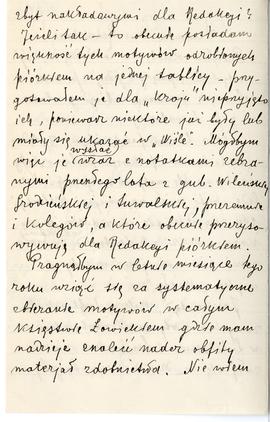 zbyt nakładowymi dla Redakcyi?
Jeżeli tak – to obecnie posiadam
większość tych motywów odrobionych
piórkiem na jednej tablicy – przy-
gotowałem je dla "Kraju" nieprzyjęto
ich, ponieważ niektóre już były lub
miały się ukazać w "Wiśle". Mógłbym
więc je wysłać wraz z notatkami zebra-
nymi przeszłego lata z gub. Wileńskiej
Grodzieńskiej i Suwalskiej, przezemnie
i kolegów, a które obecnie przeryso-
wywuję dla Redakcyi piórkiem.
Pragnąłbym w letnie miesiące tego
roku wziąć się za systematyczne
zbieranie motywów w całym
Księstwie Łowickiem gdzie mam
nadzieję znaleść nader obfity
materjał zdobnictwa. Nie wiem